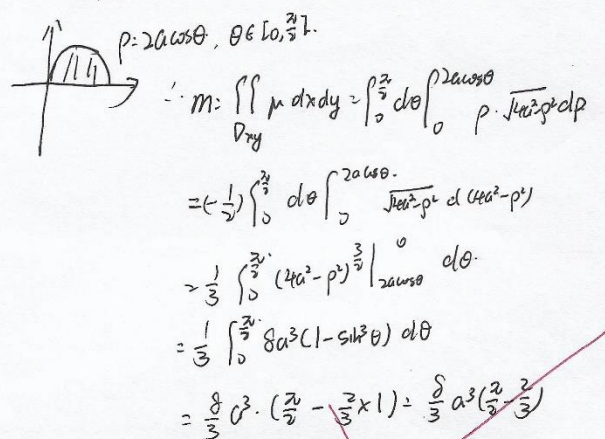 ρ=2acosθ, θ∈[0,π/2].
∴ m= ∬_{Dxy} μ dxdy = ∫_0^{π/2} dθ ∫_0^{2acosθ} ρ·√(4a²-ρ²) dρ
=(-1/2) ∫_0^{π/2} dθ ∫_0^{2acosθ} √(4a²-ρ²) d(4a²-ρ²)
= 1/3 ∫_0^{π/2} (4a²-ρ²)^{3/2} |_{2acosθ}^{0} dθ.
= 1/3 ∫_0^{π/2} 8a³(1-sin³θ) dθ
= 8/3 a³·(π/2 - 2/3×1) = 8/3 a³(π/2 - 2/3)